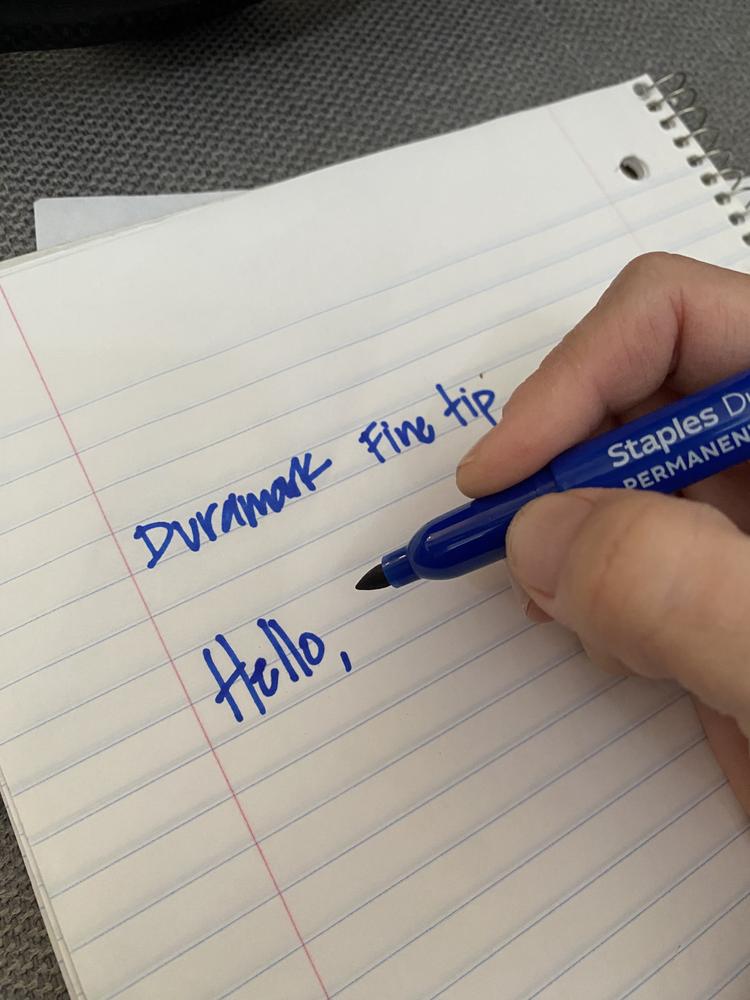 Duramark Fine tip
Hello,
Staples Du
PERMANENT